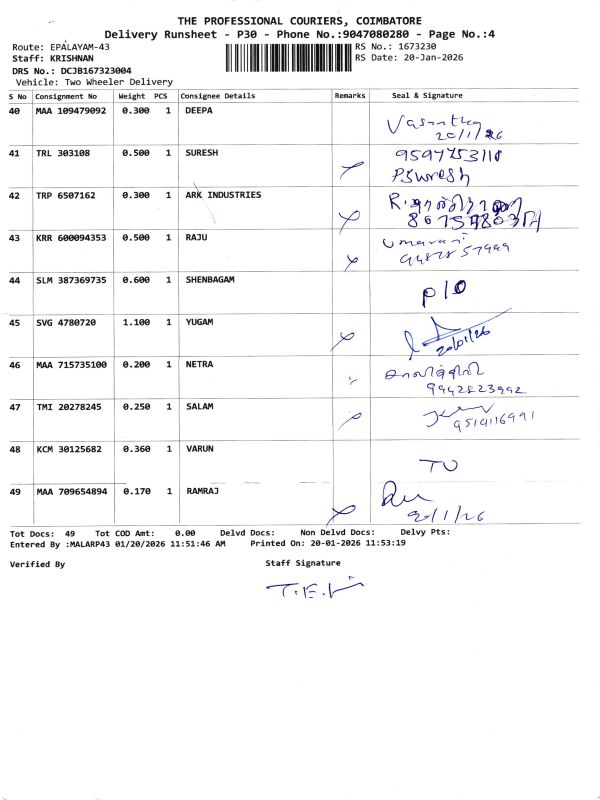 THE PROFESSIONAL COURIERS, COIMBATORE
Delivery Runsheet - P30 - Phone No.:9047080280 - Page No.:4
Route: EPALAYAM-43 RS No.: 1673230
Staff: KRISHNAN RS Date: 20-Jan-2026
DRS No.: DCJB167323004
Vehicle: Two Wheeler Delivery
S No Consignment No Weight PCS Consignee Details Remarks Seal & Signature
40 MAA 109479092 0.300 1 DEEPA
20/1/26
41 TRL 303108 0.500 1 SURESH 9597753118
P Suresh
42 TRP 6507162 0.300 1 ARK INDUSTRIES
43 KRR 600094353 0.500 1 RAJU
44 SLM 387369735 0.600 1 SHENBAGAM P/O
45 SVG 4780720 1.100 1 YUGAM
20/01/26
46 MAA 715735100 0.200 1 NETRA
9942823992
47 TMI 20278245 0.250 1 SALAM
9514116991
48 KCM 30125682 0.360 1 VARUN
49 MAA 709654894 0.170 1 RAMRAJ
20/1/26
Tot Docs: 49 Tot COD Amt: 0.00 Delvd Docs: Non Delvd Docs: Delvy Pts:
Entered By :MALARP43 01/20/2026 11:51:46 AM Printed On: 20-01-2026 11:53:19
Verified By Staff Signature